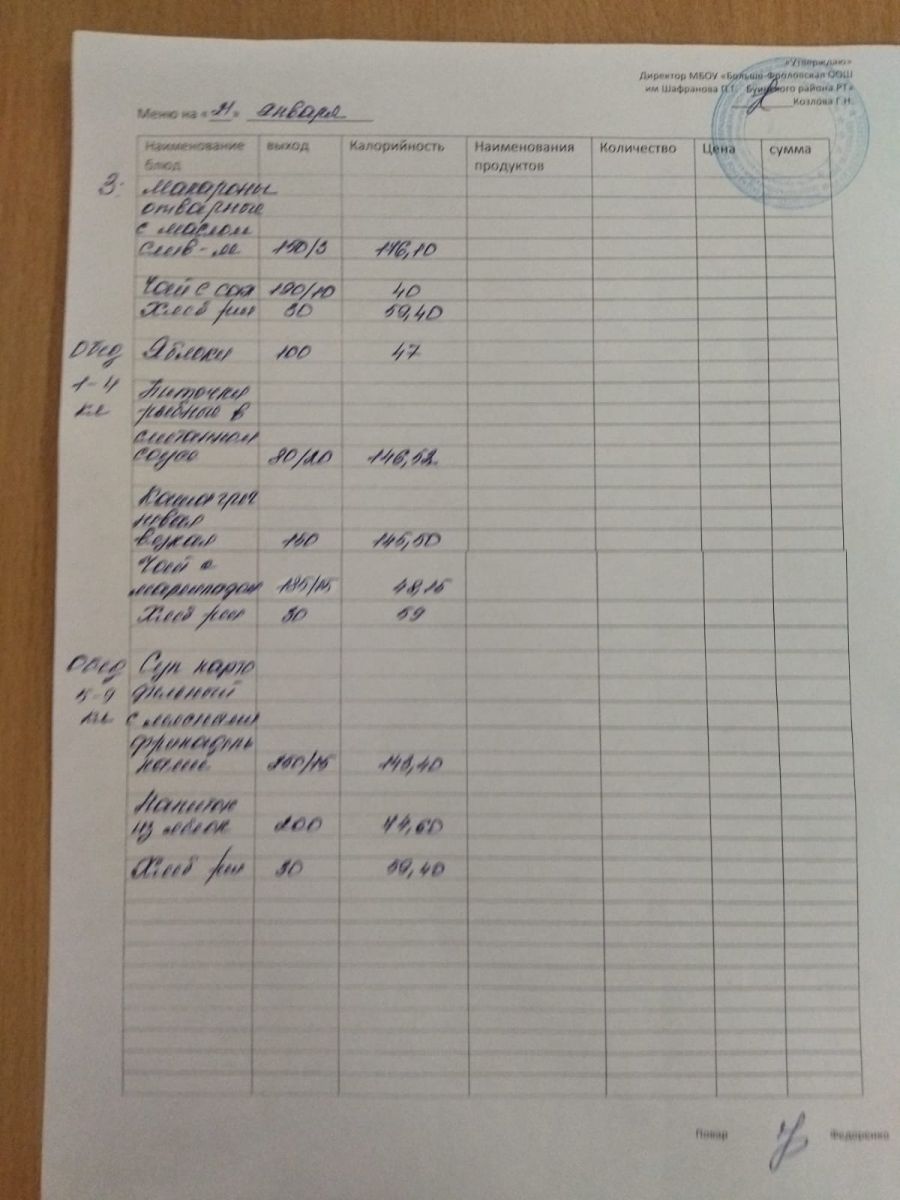 «Утверждаю»
Директор МБОУ «Больше-Фроловская ООШ
им Шафранова П.Г. Буинского района РТ»
Козлова Г.Н.
Меню на «21» января
Наименование блюд выход Калорийность Наименования продуктов Количество Цена сумма
З.
Макароны
отварные
с маслом
слив-м 150/3 176,10
Чай с сах 190/10 40
Хлеб рж 30 59,40
Обед Яблоки 100 47
1-4 Биточки
кл рыбные в
сметанном
соусе 80/20 146,52
Каша греч
невая
вязкая 150 145,50
Чай с
мармеладом 185/15 48,15
Хлеб рж 30 59
Обед Суп карто
5-9 фельный
кл с мясными
фрикадель
ками 250/15 148,40
Напиток
из яблок 200 44,60
Хлеб рж 30 59,40
Повар Федоренко